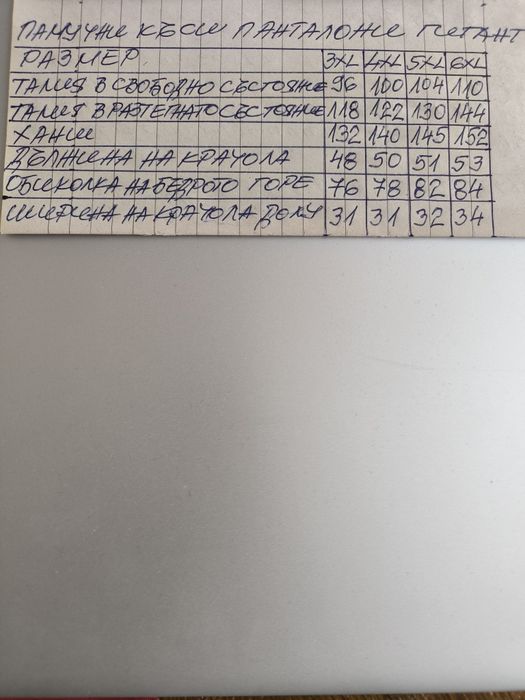 ПАМУЧНИ КЪСИ ПАНТАЛОНИ ГИГАНТ
РАЗМЕР 3XL 4XL 5XL 6XL
ТАЛИЯ В СВОБОДНО СЪСТОЯНИЕ 96 100 104 110
ТАЛИЯ В РАЗТЕГНАТО СЪСТОЯНИЕ 118 122 130 144
ХАНШ 132 140 145 152
ДЪЛЖИНА НА КРАЧОЛА 48 50 51 53
ОБИКОЛКА НА БЕДРОТО ГОРЕ 76 78 82 84
ШИРИНА НА КРАЧОЛА ДОЛУ 31 31 32 34